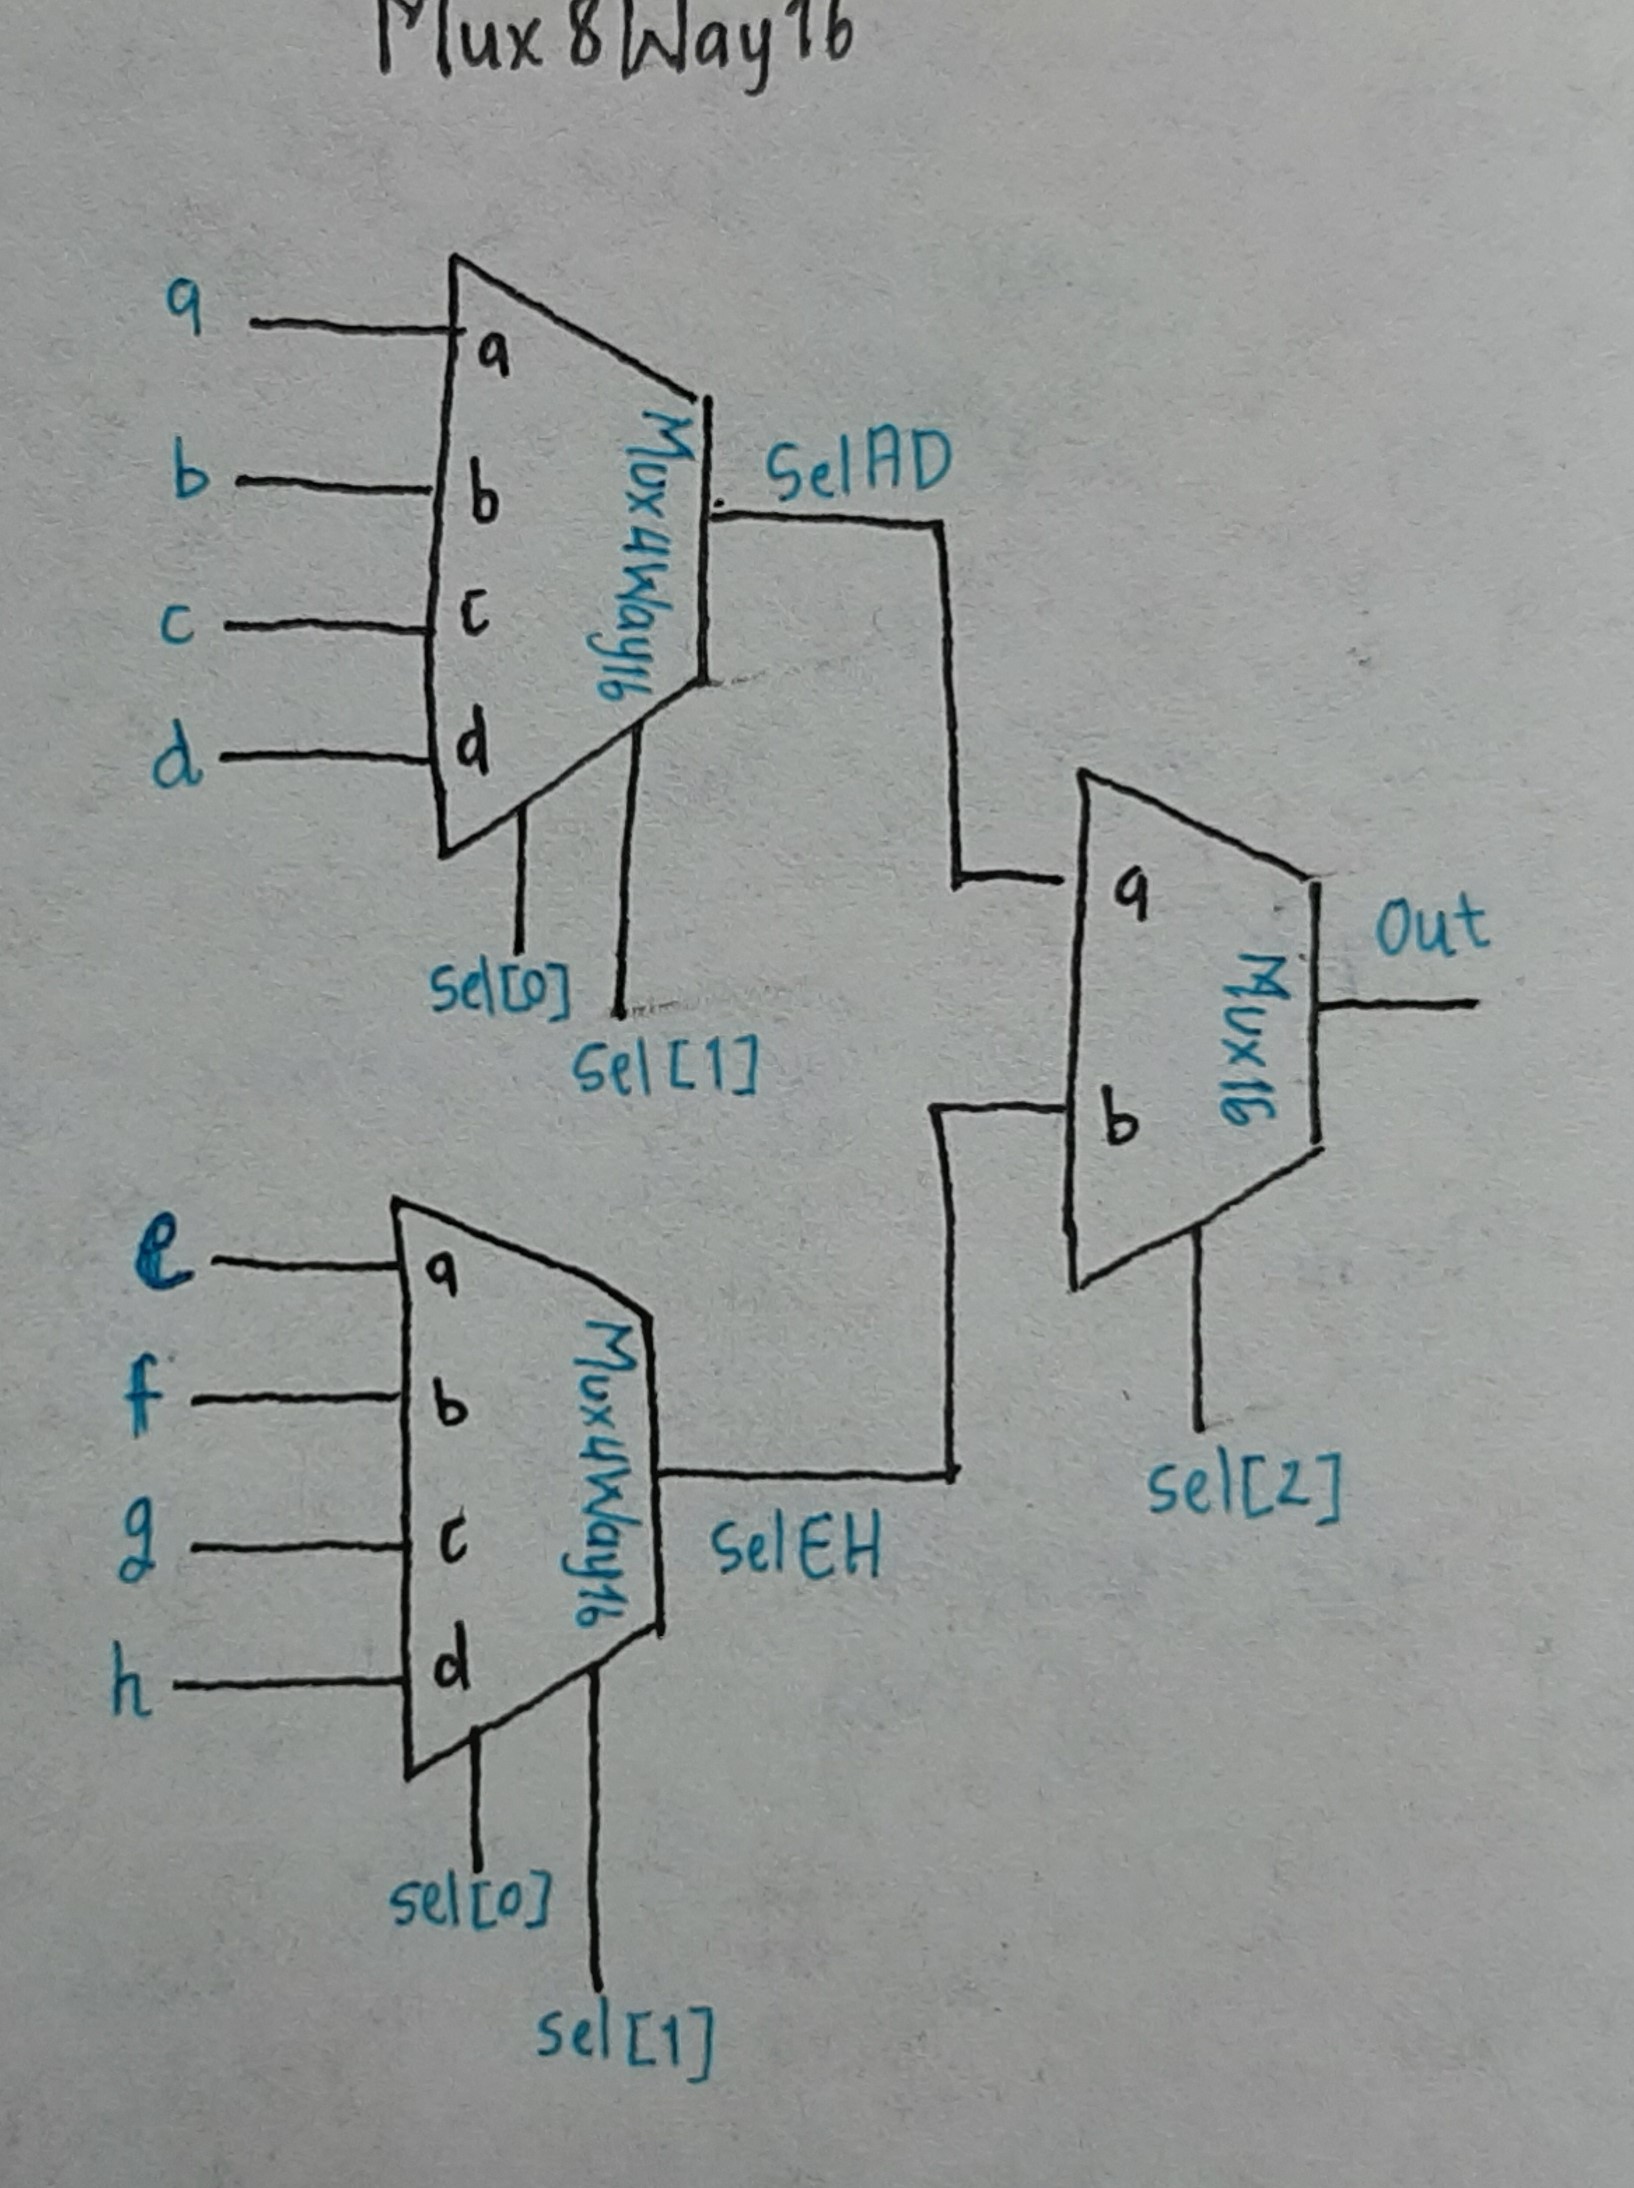 Mux8Way16
a
a
b
b
c
c
d
d
Mux4Way16
SelAD
sel[0]
sel[1]
a
b
Mux16
Out
sel[2]
e
a
f
b
g
c
h
d
Mux4Way16
SelEH
sel[0]
sel[1]